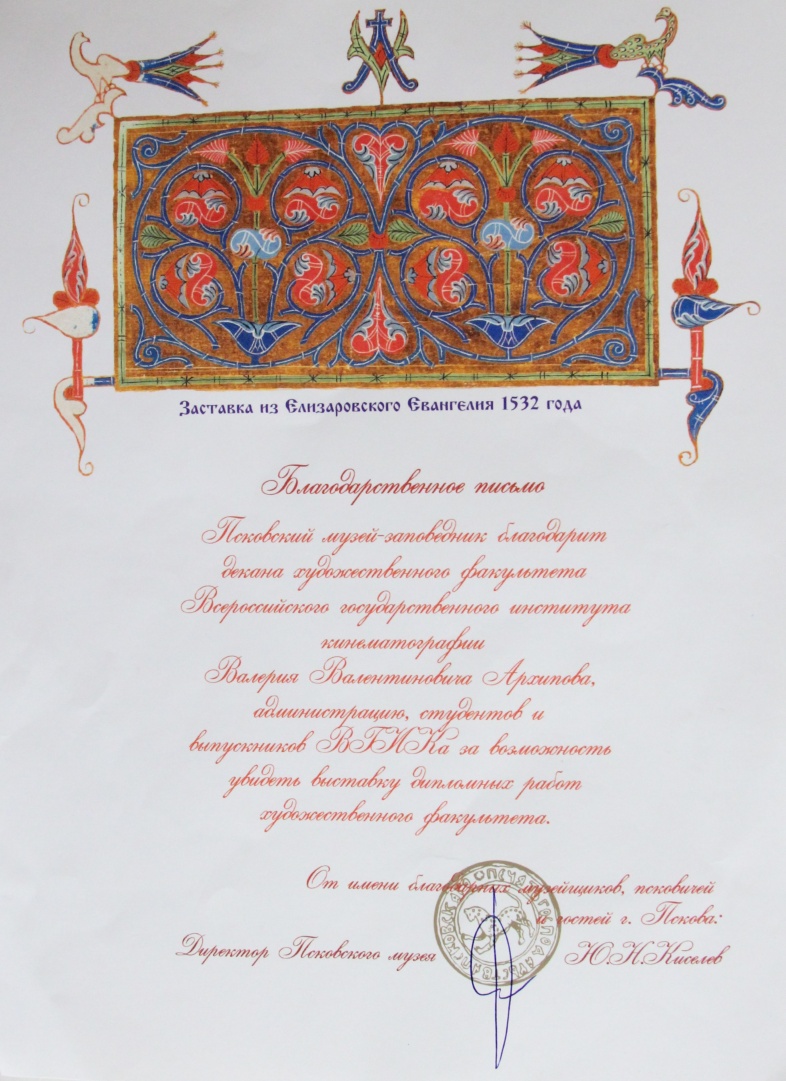 Заставка из Елизаровского Евангелия 1532 года
Благодарственное письмо
Псковский музей-заповедник благодарит
декана художественного факультета
Всероссийского государственного института
кинематографии
Валерия Валентиновича Архипова,
администрацию, студентов и
выпускников ВГИКа за возможность
увидеть выставку дипломных работ
художественного факультета.
От имени благодарных музейщиков, псковичей
и гостей г. Пскова:
Директор Псковского музея
Ю.Н.Киселев